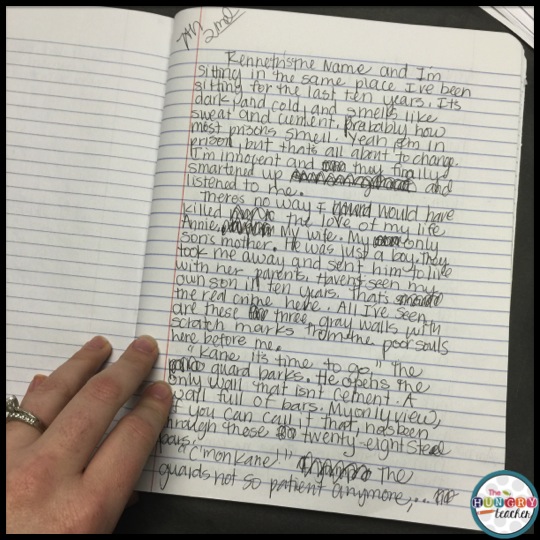 7th
2nd
Kenneth's the Name and I'm
sitting in the same place I've been
sitting for the last ten years. Its
dark and cold, and smells like
sweat and cement. Probably how
most prisons smell. Yeah I'm in
prison, but that's all about to change.
I'm innocent and they finally
smartened up and
listened to me.
Theres no way I would have
killed the love of my life
Annie. My wife. My only
son's mother. He was just a boy. They
took me away and sent him to live
with her parents. Haven't seen my
own son in ten years. That's
the real crime here. All I've seen
are these three, gray walls with
scratch marks from the poor souls
here before me.
"Kane It's time to go," The
guard barks. He opens the
only wall that isn't cement. A
wall full of bars. My only view,
if you can call it that, has been
through those twenty-eight steel
bars.
"C'mon Kane!" The
guards not so patient anymore,..
The
HUNGRY
teacher